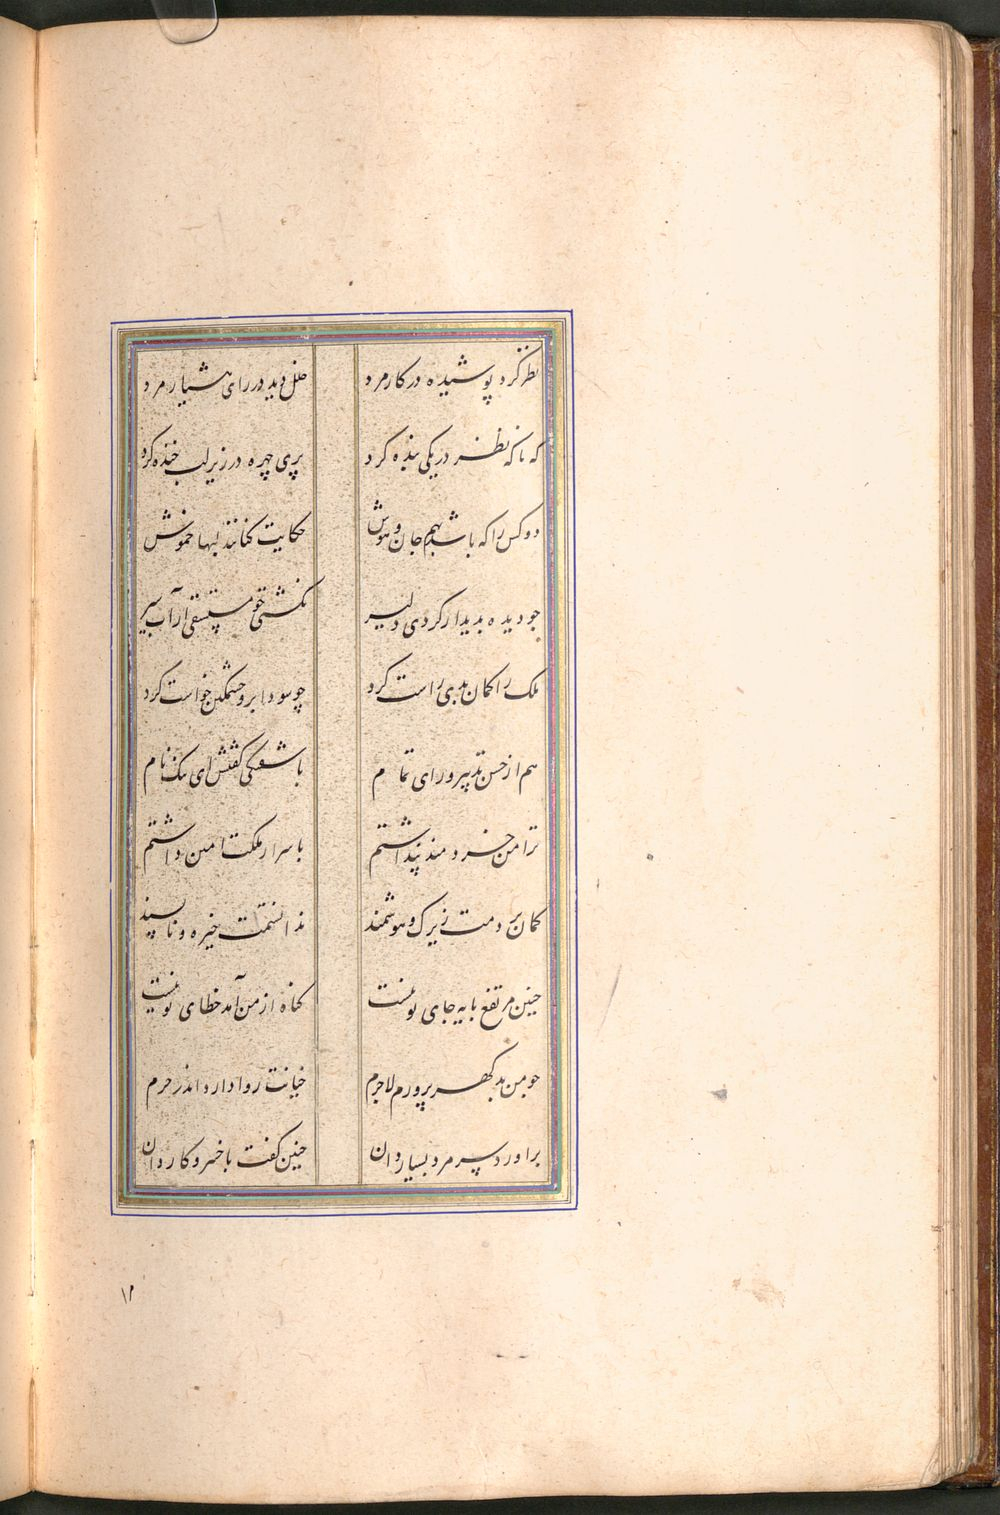 نظر کرد پوشیده در کار مرد خلل دید در رای هشیار مرد
که ناکه نظر در یکی بنده کرد پری چهره در زیر لب خنده کرد
دو کس را که باشد بهم جان و هوش حکایت کنانند لبها خموش
چو دیده بدیدار کردی دلیر نکشتی چو مستسقی از آب سیر
ملک را کمان بدی راست کرد چو سودا برو خشمکین خواست کرد
هم از حسن تدبیر و رای تمام کفتش ای نیک نام
ترا من خردمند پنداشتم باسرار ملکت امین داشتم
کمان بردمت زیرک و هوشمند ندانستمت خیره و ناپسند
چنین مرتفع پایه جای تو نیست کناه از من آمد خطای تو نیست
چو من بدکهر پرورم لاجرم خیانت روا دارد اندر حرم
براورد سر مرد بسیاردان چنین کفت با خسرو کاردان